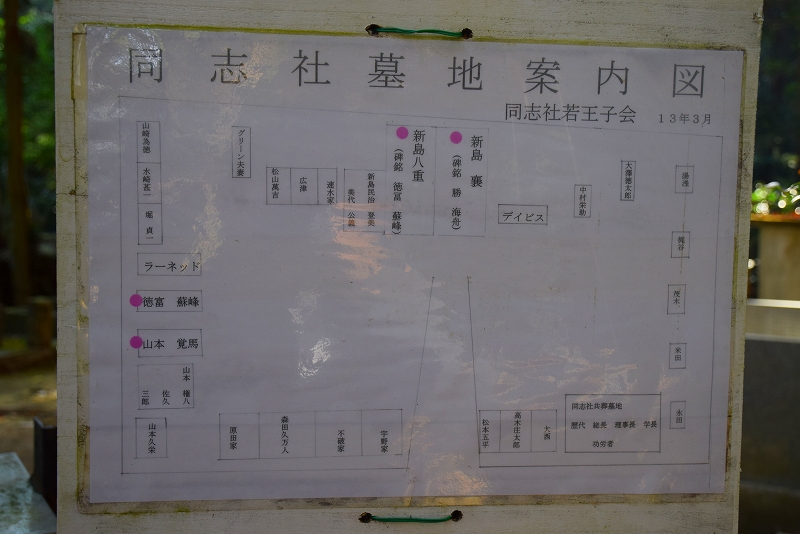 同志社墓地案内図
同志社若王子会 13年3月
山崎為徳
永崎甚一
堀 貞一
ラーネット
徳富 蘇峰
山本 覚馬
山本 権八
佐久
三郎
山本久栄
グリーン夫妻
松山萬吉
広津
速水家
新島民治 登美
美代 公義
新島八重
(碑銘 徳冨 蘇峰)
新島 襄
(碑銘 勝 海舟)
デイビス
中村栄助
大澤徳太郎
湯浅
梶谷
茂木
米田
永田
原田家
森田久万人
不破家
宇野家
松本五平
高木庄太郎
大西
同志社共葬墓地
歴代 総長 理事長 学長
功労者